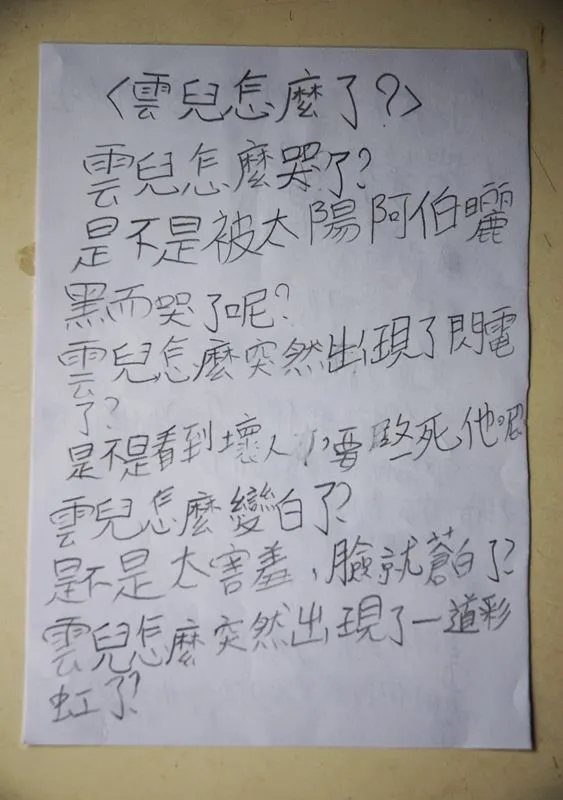 〈雲兒怎麼了?〉
雲兒怎麼哭了?
是不是被太陽阿伯曬
黑而哭了呢?
雲兒怎麼突然出現了閃電
了?
是不是看到壞人,要 死他呢
雲兒怎麼變白了?
是不是太害羞,臉就蒼白了?
雲兒怎麼突然出現了一道彩
虹了?